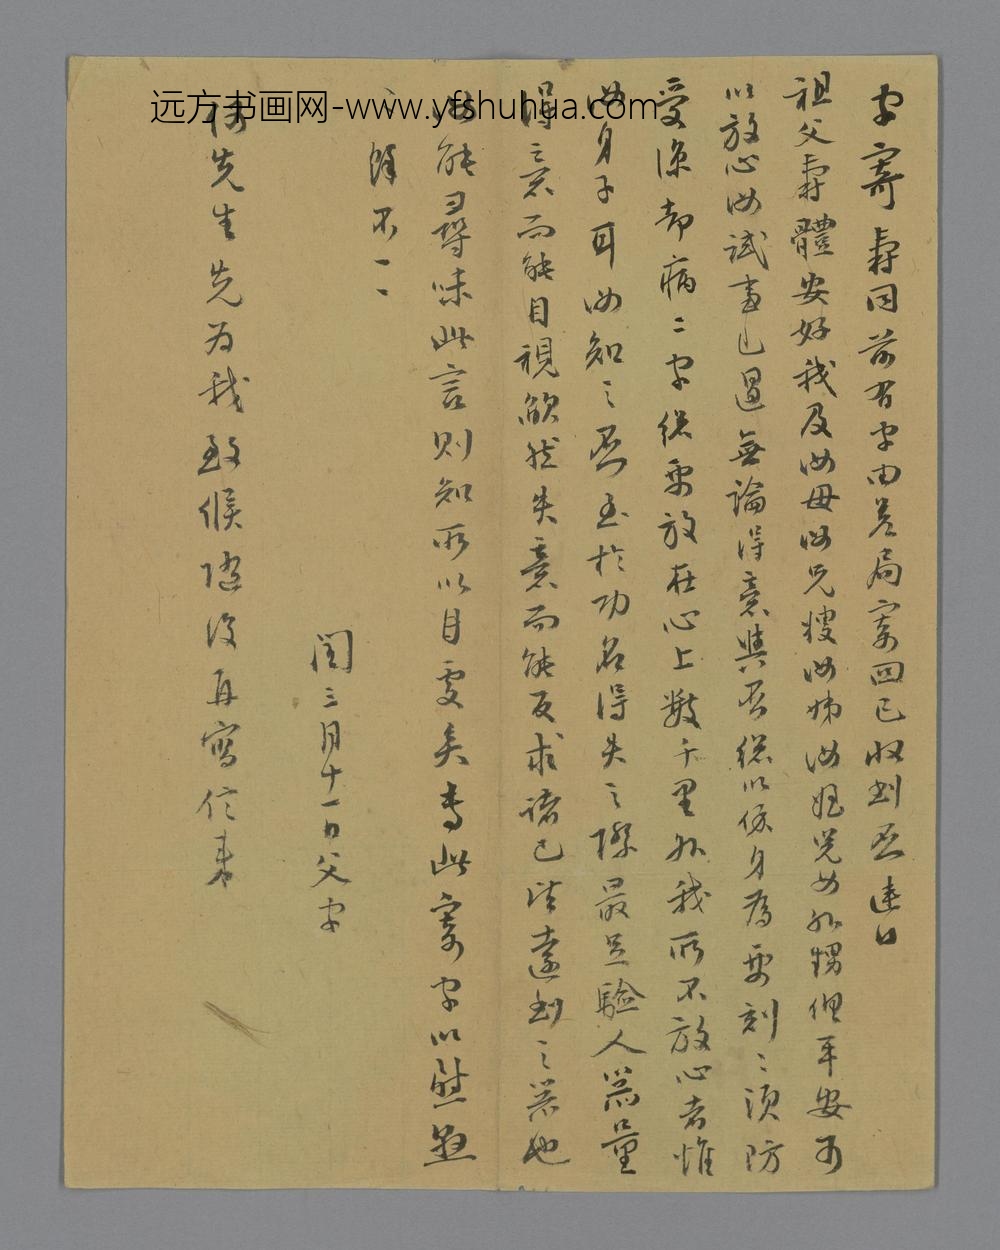 字寄寿同前有字由差局寄回已收到否连日
祖父寿體安好我及汝母汝兄嫂汝姊汝姪兒女外甥俱平安可
以放心汝試事已過無論得意與否總以保身為要刻刻須防
受涼却病二字總要放在心上數千里外我所不放心者惟
汝身子耳汝知之否至於功名得失之際最足驗人器量
得意而能自視欿然失意而能反求諸己皆遠到之器也
汝能尋味此言則知所以自處矣專此寄字以慰懸
餘不一一
閏三月十一日父字
先生先为我致候隨後再寫信來
远方书画网-www.yfshuhua.com